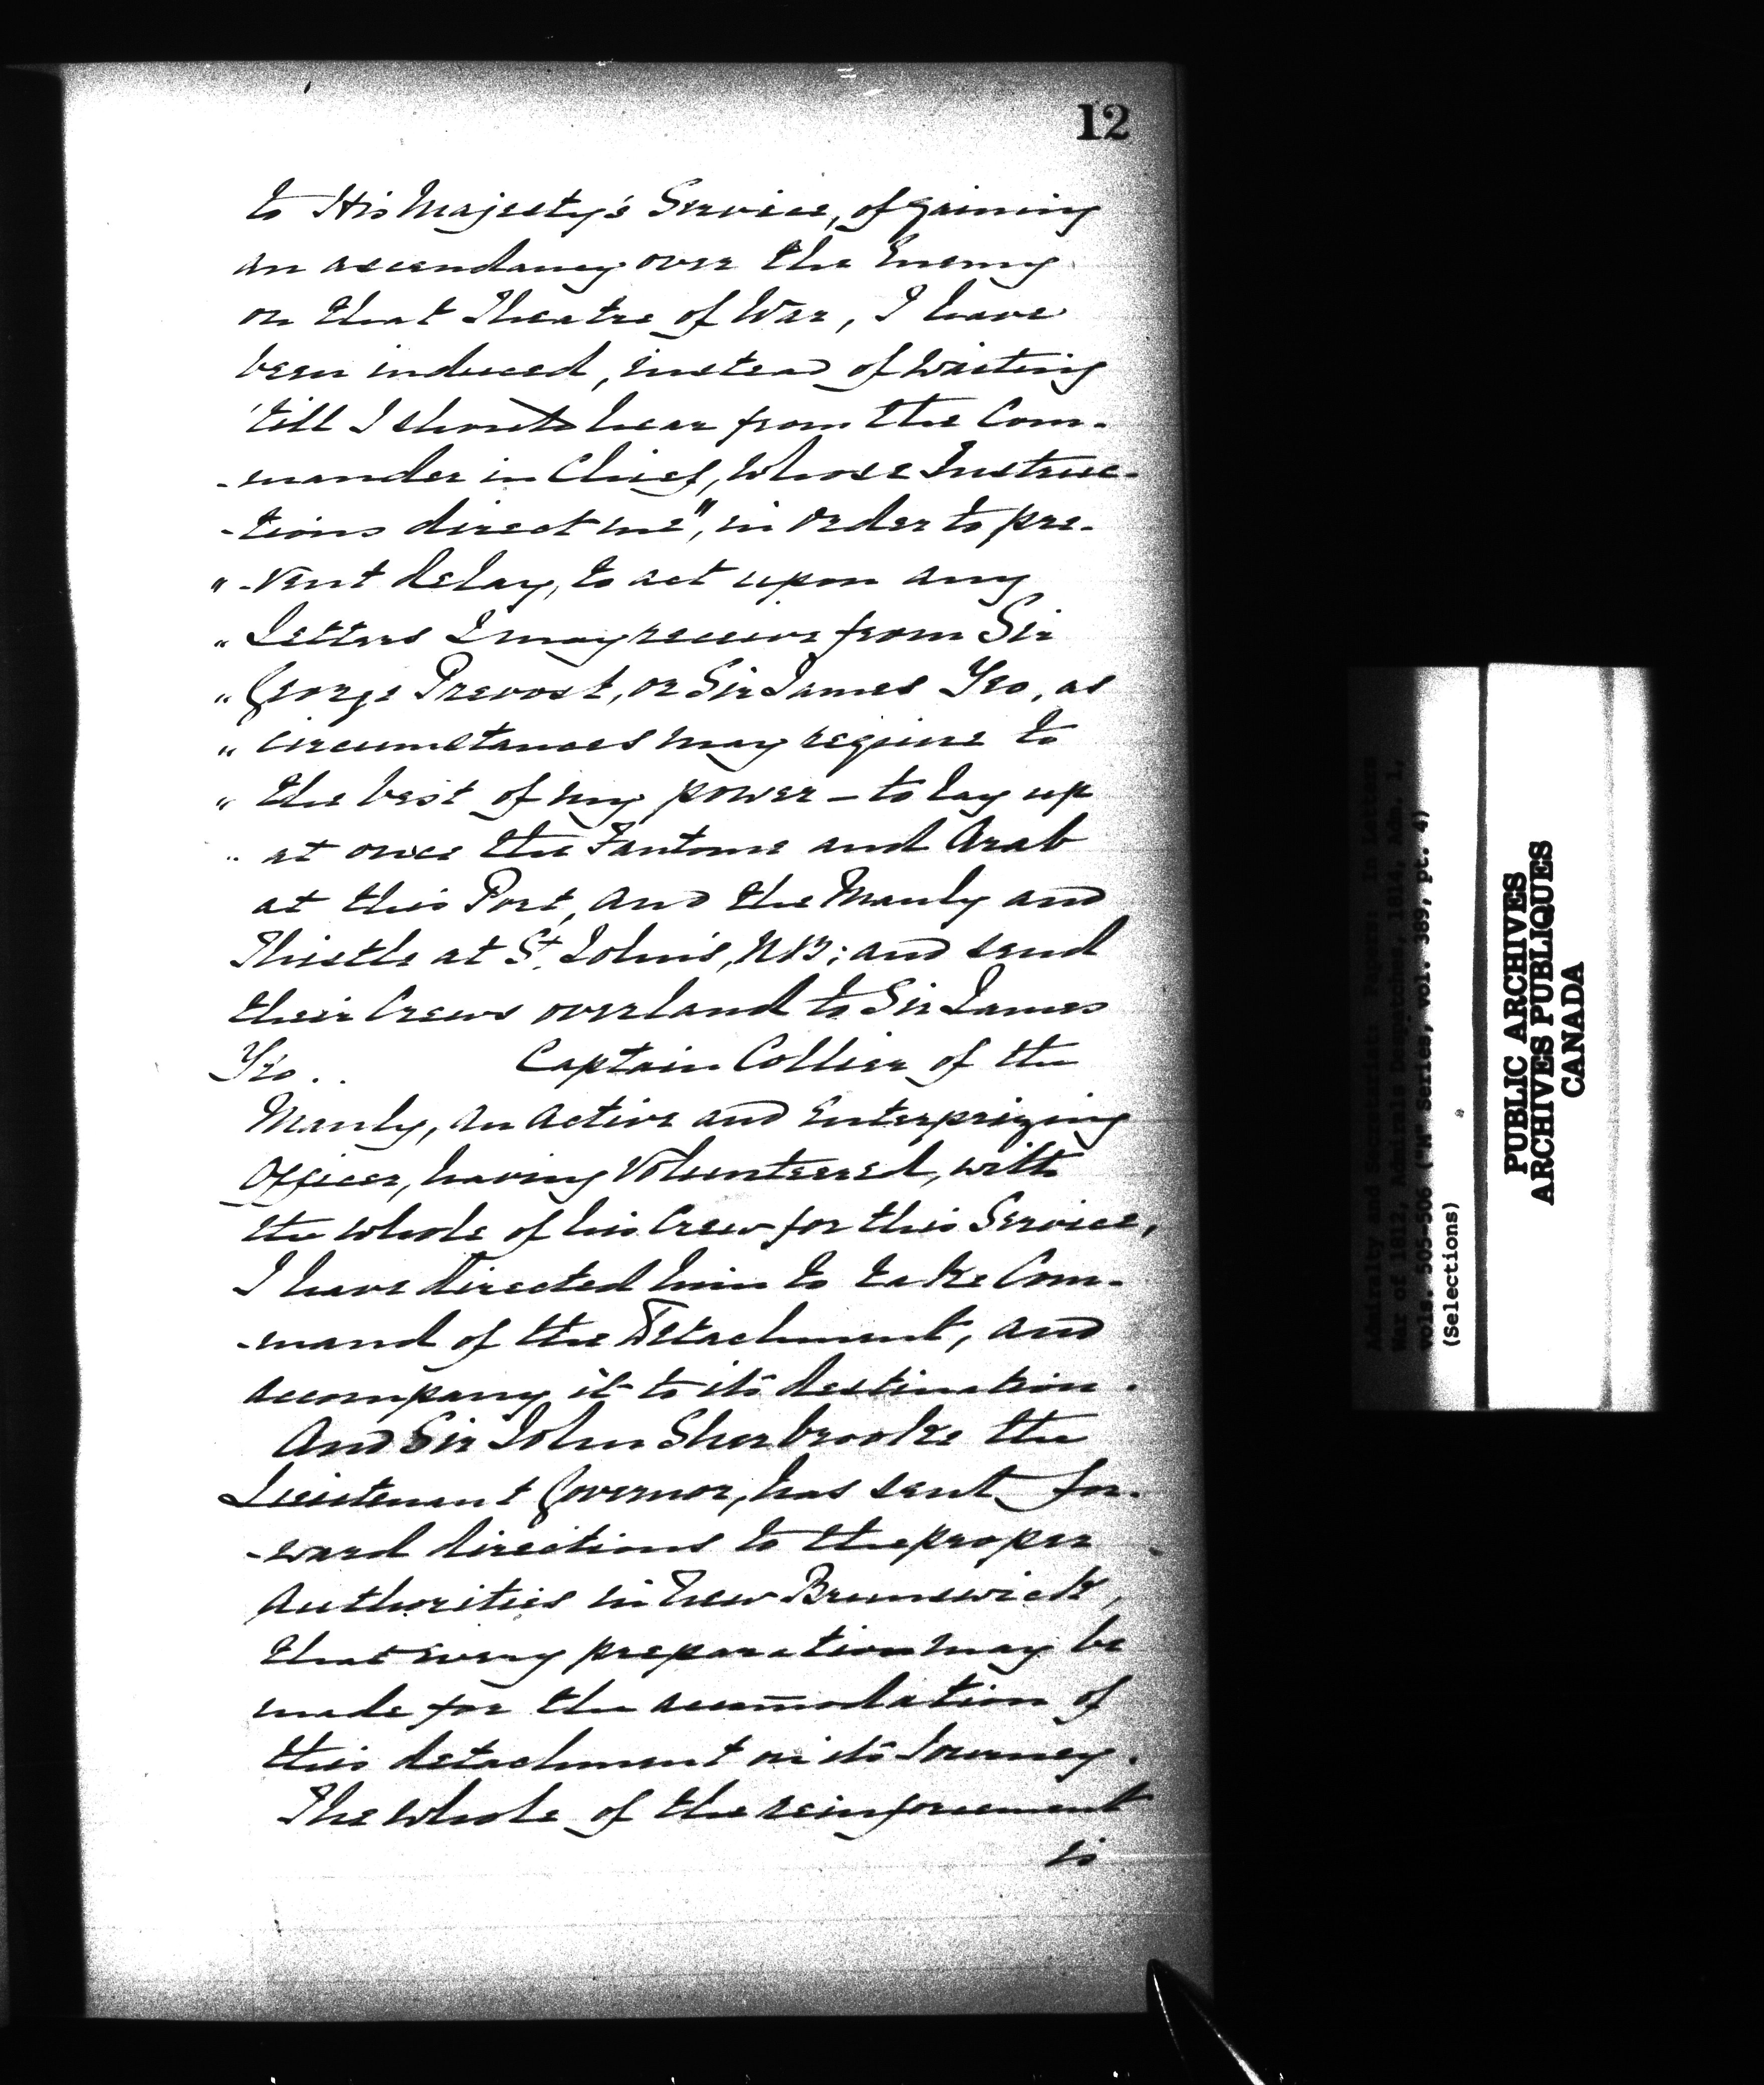 12
to His Majesty's Service, of gaining
an ascendancy over the Enemy
on that Theatre of War, I have
been induced, instead of waiting
'till I should hear from the Com-
-mander in Chief, whose Instruc-
-tions direct me", in order to pre-
" -vent delay, to act upon any
" Letters I may receive from Sir
" George Prevost, or Sir James Yeo, as
" circumstances may require to
" the best of my power – to lay up
" at once the Fantome and Arab
at this Port, and the Manly and
Thistle at St. John's, NB; and send
their Crews overland to Sir James
Yeo. . Captain Collier of the
Manly, an active and Enterprizing
Officer, having Volunteered, with
the whole of his Crew for this Service,
I have directed him to take Com-
-mand of the Detachment, and
accompany it to its destination.
And Sir John Sherbrooke the
Lieutenant Governor, has sent for-
-ward directions to the proper
Authorities in New Brunswick,
that every preparation may be
made for the accomodation of
this detachment on its Journey.
The whole of the reinforcement
is
Admiralty and Secretariat: Papers: In Letters
War of 1812, Admirals Despatches, 1814, Adm. 1,
vols. 505-506 ("M" Series, vol. 389, pt. 4)
(Selections)
PUBLIC ARCHIVES
ARCHIVES PUBLIQUES
CANADA